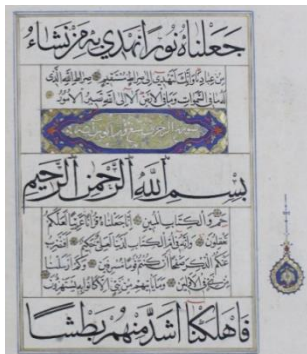 جعلناه نورا نهدي به من نشاء
من عبادنا وإنك لتهدي إلى صراط مستقيم صراط الله الذي
له ما في السموات وما في الأرض ألا إلى الله تصير الأمور
سورة الزخرف تسع وثمانون آية
بسم الله الرحمن الرحيم
حم والكتاب المبين إنا جعلناه قرآنا عربيا لعلكم
تعقلون وإنه في أم الكتاب لدينا لعلي حكيم أفنضرب
عنكم الذكر صفحا أن كنتم قوما مسرفين وكم أرسلنا
من نبي في الأولين وما يأتيهم من نبي إلا كانوا به يستهزؤن
فأهلكنا أشد منهم بطشا